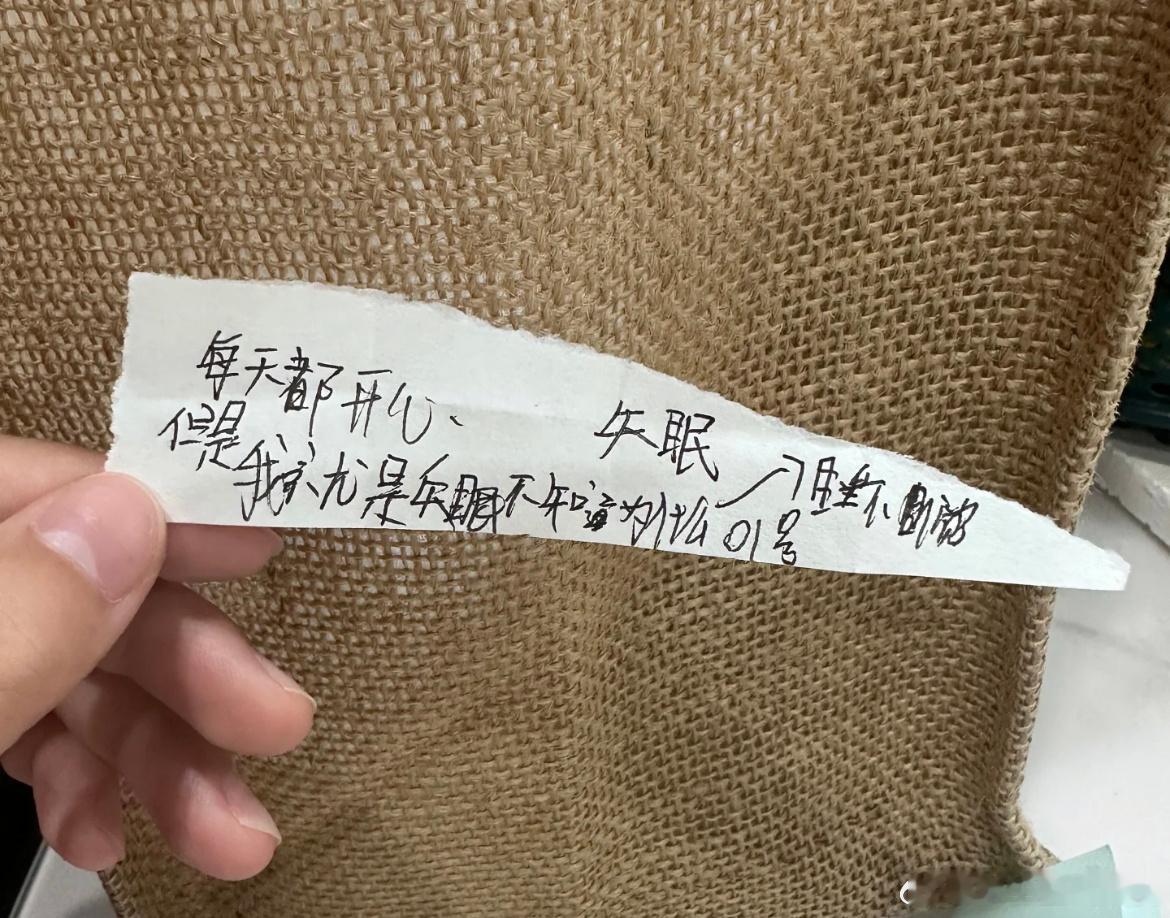 每天都开心、
失眠
但是
我就是失眠不知道为什么
睡不
01号